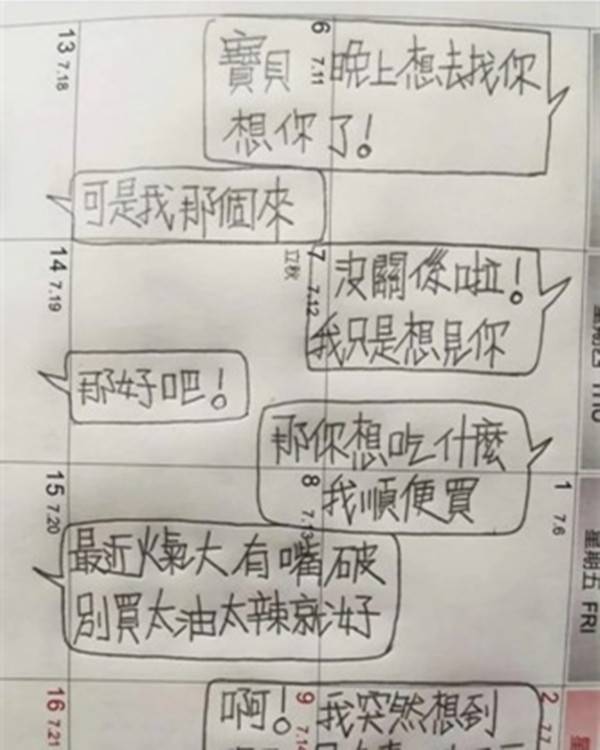 寶貝 晚上想去找你
想你了！
可是我那個來
沒關係啦！
我只是想見你
那好吧！
那你想吃什麼
我順便買
最近燥大有嘴破
別買太油太辣就好
啊！我突然想到
13 7.18
6 7.11
14 7.19
7 7.12
立秋
15 7.20
8 7.13
1 7.6
星期五 FRI
16 7.21
9 7.14
2 7.7